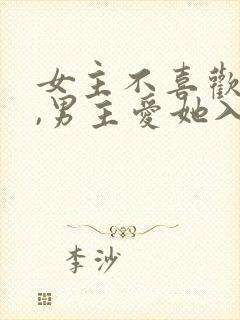 女主不喜歡
,男主愛她入
李沙